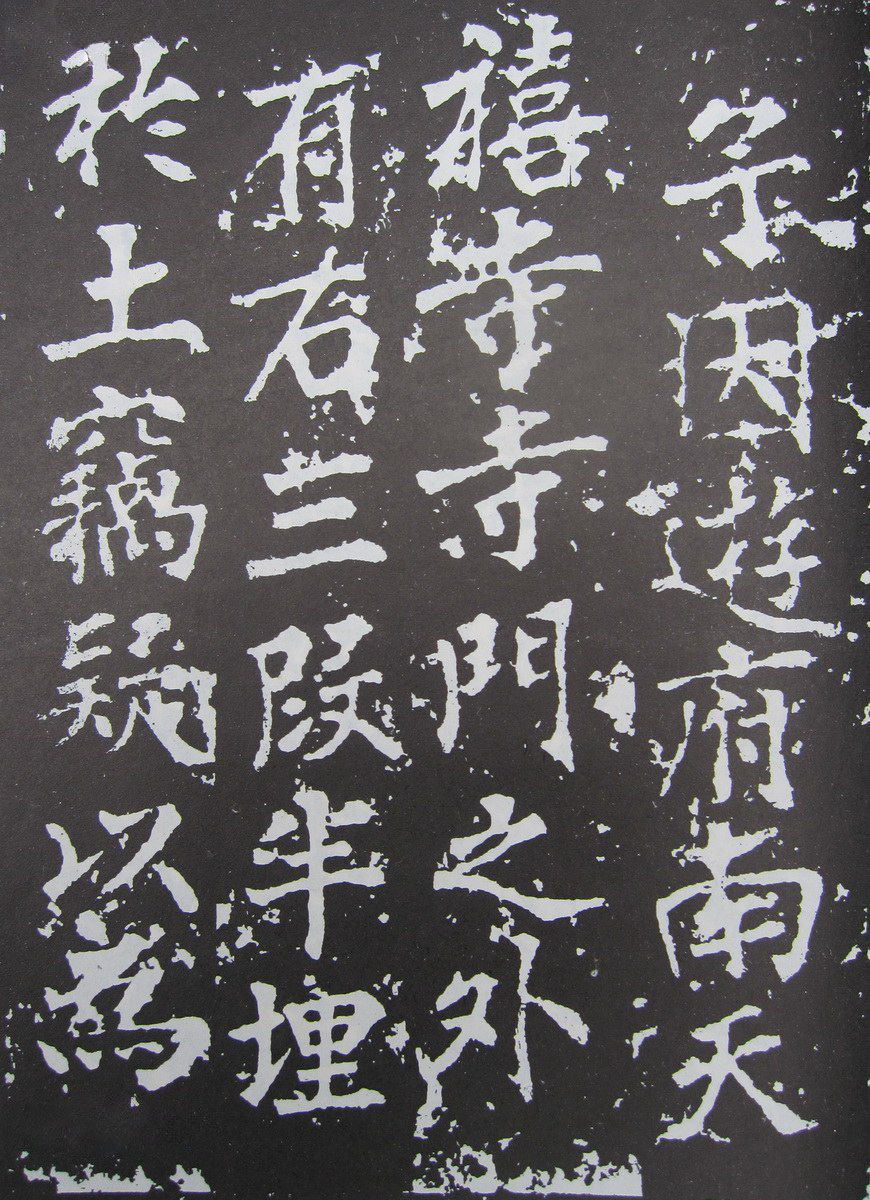 予因遊府南天
禧寺寺門之外
有石三段半埋
於土竊疑以爲